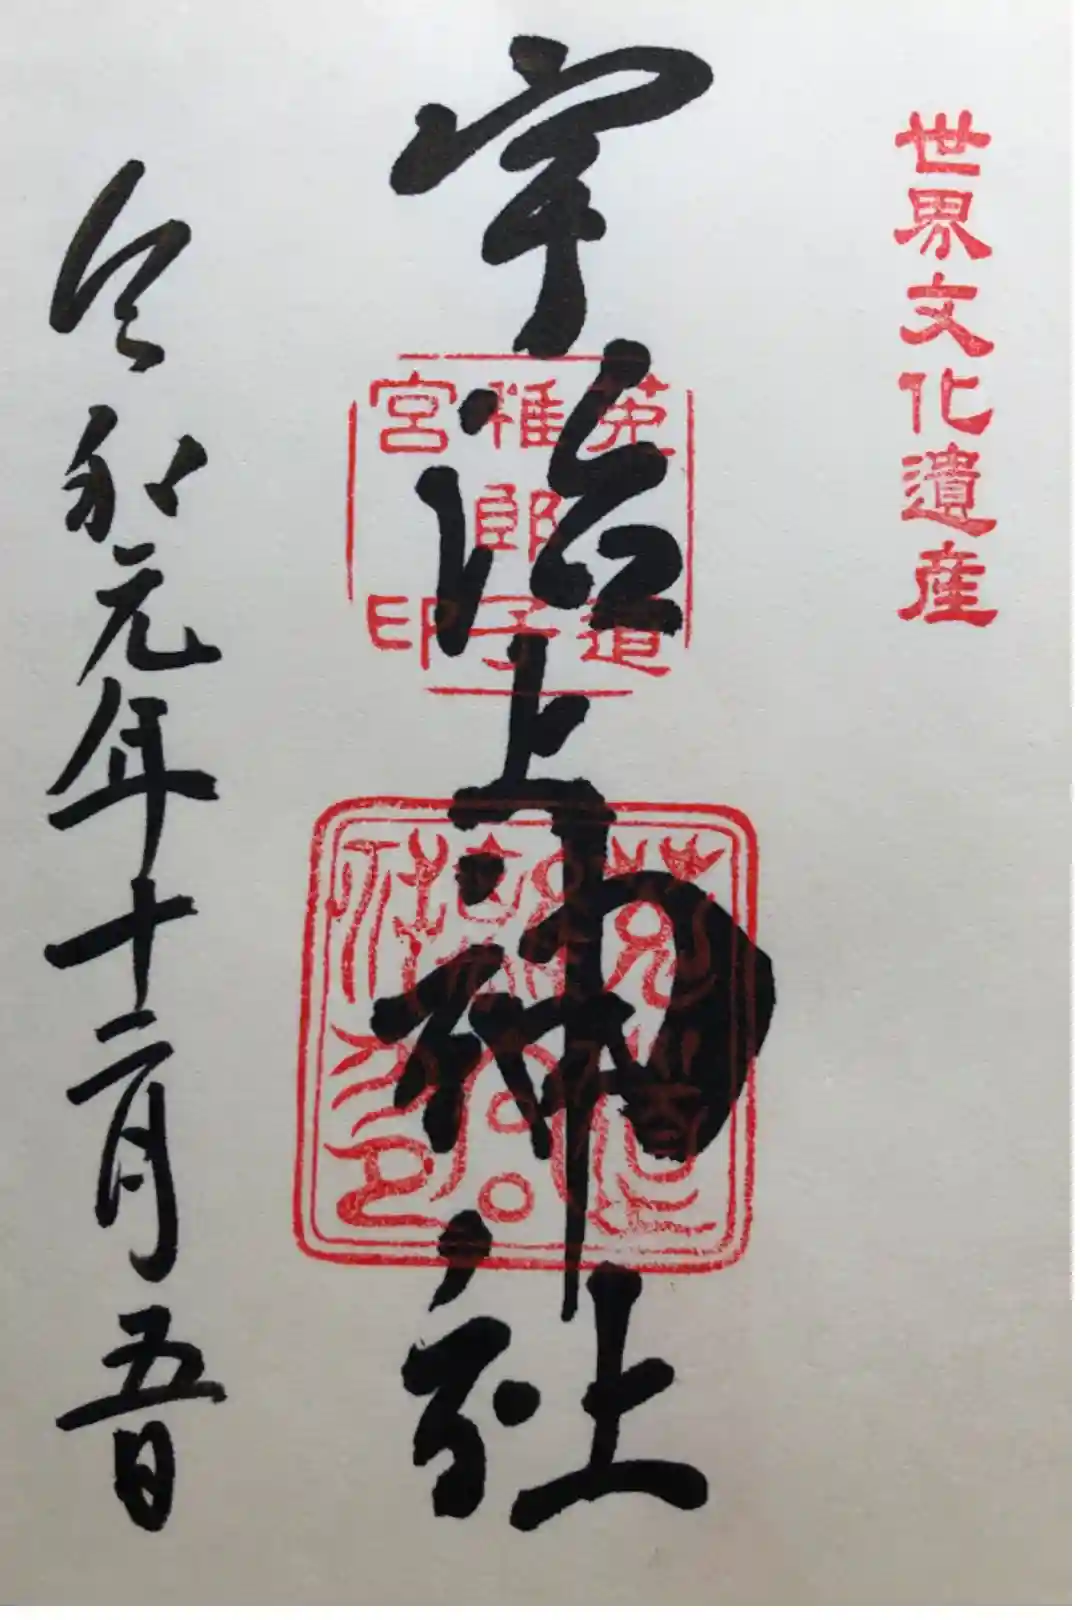 世界文化遺産
宇治上神社
菟道
稚郎子
宮印
令和元年十二月五日